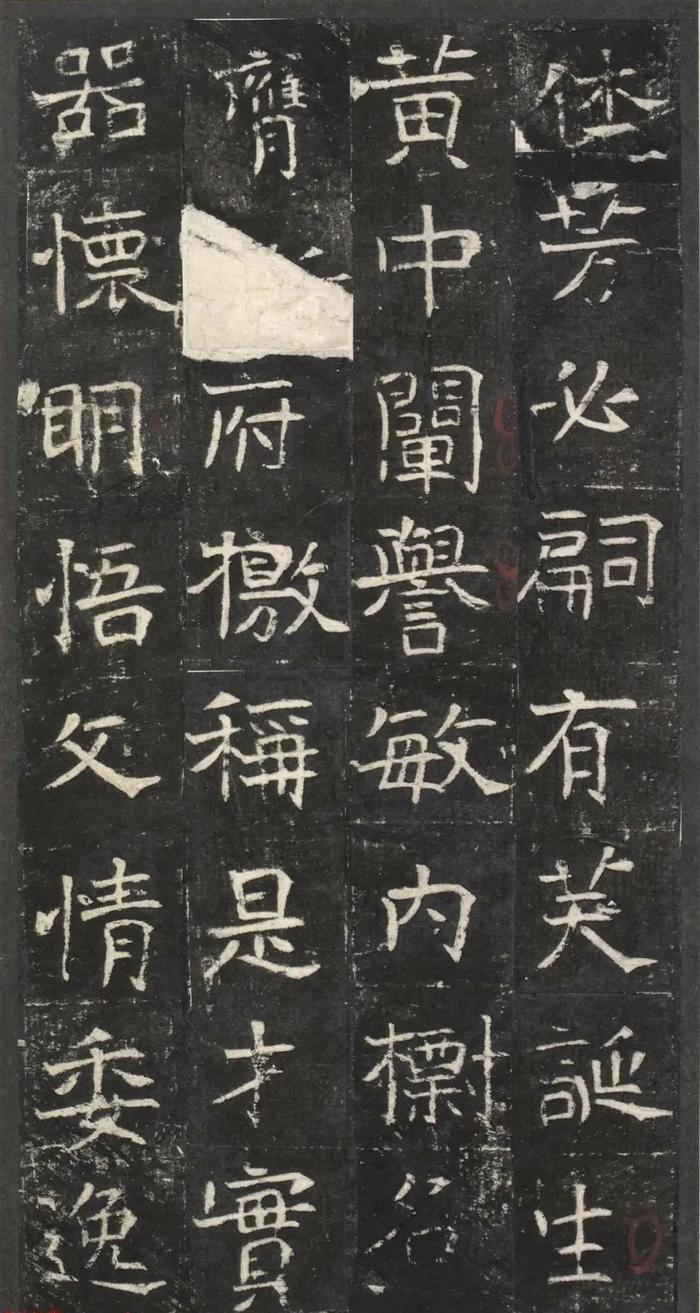 休芳必嗣有美誕生
黃中闡譽敏內標名
膺府檄稱是才實
器懷眀悟文情委逸